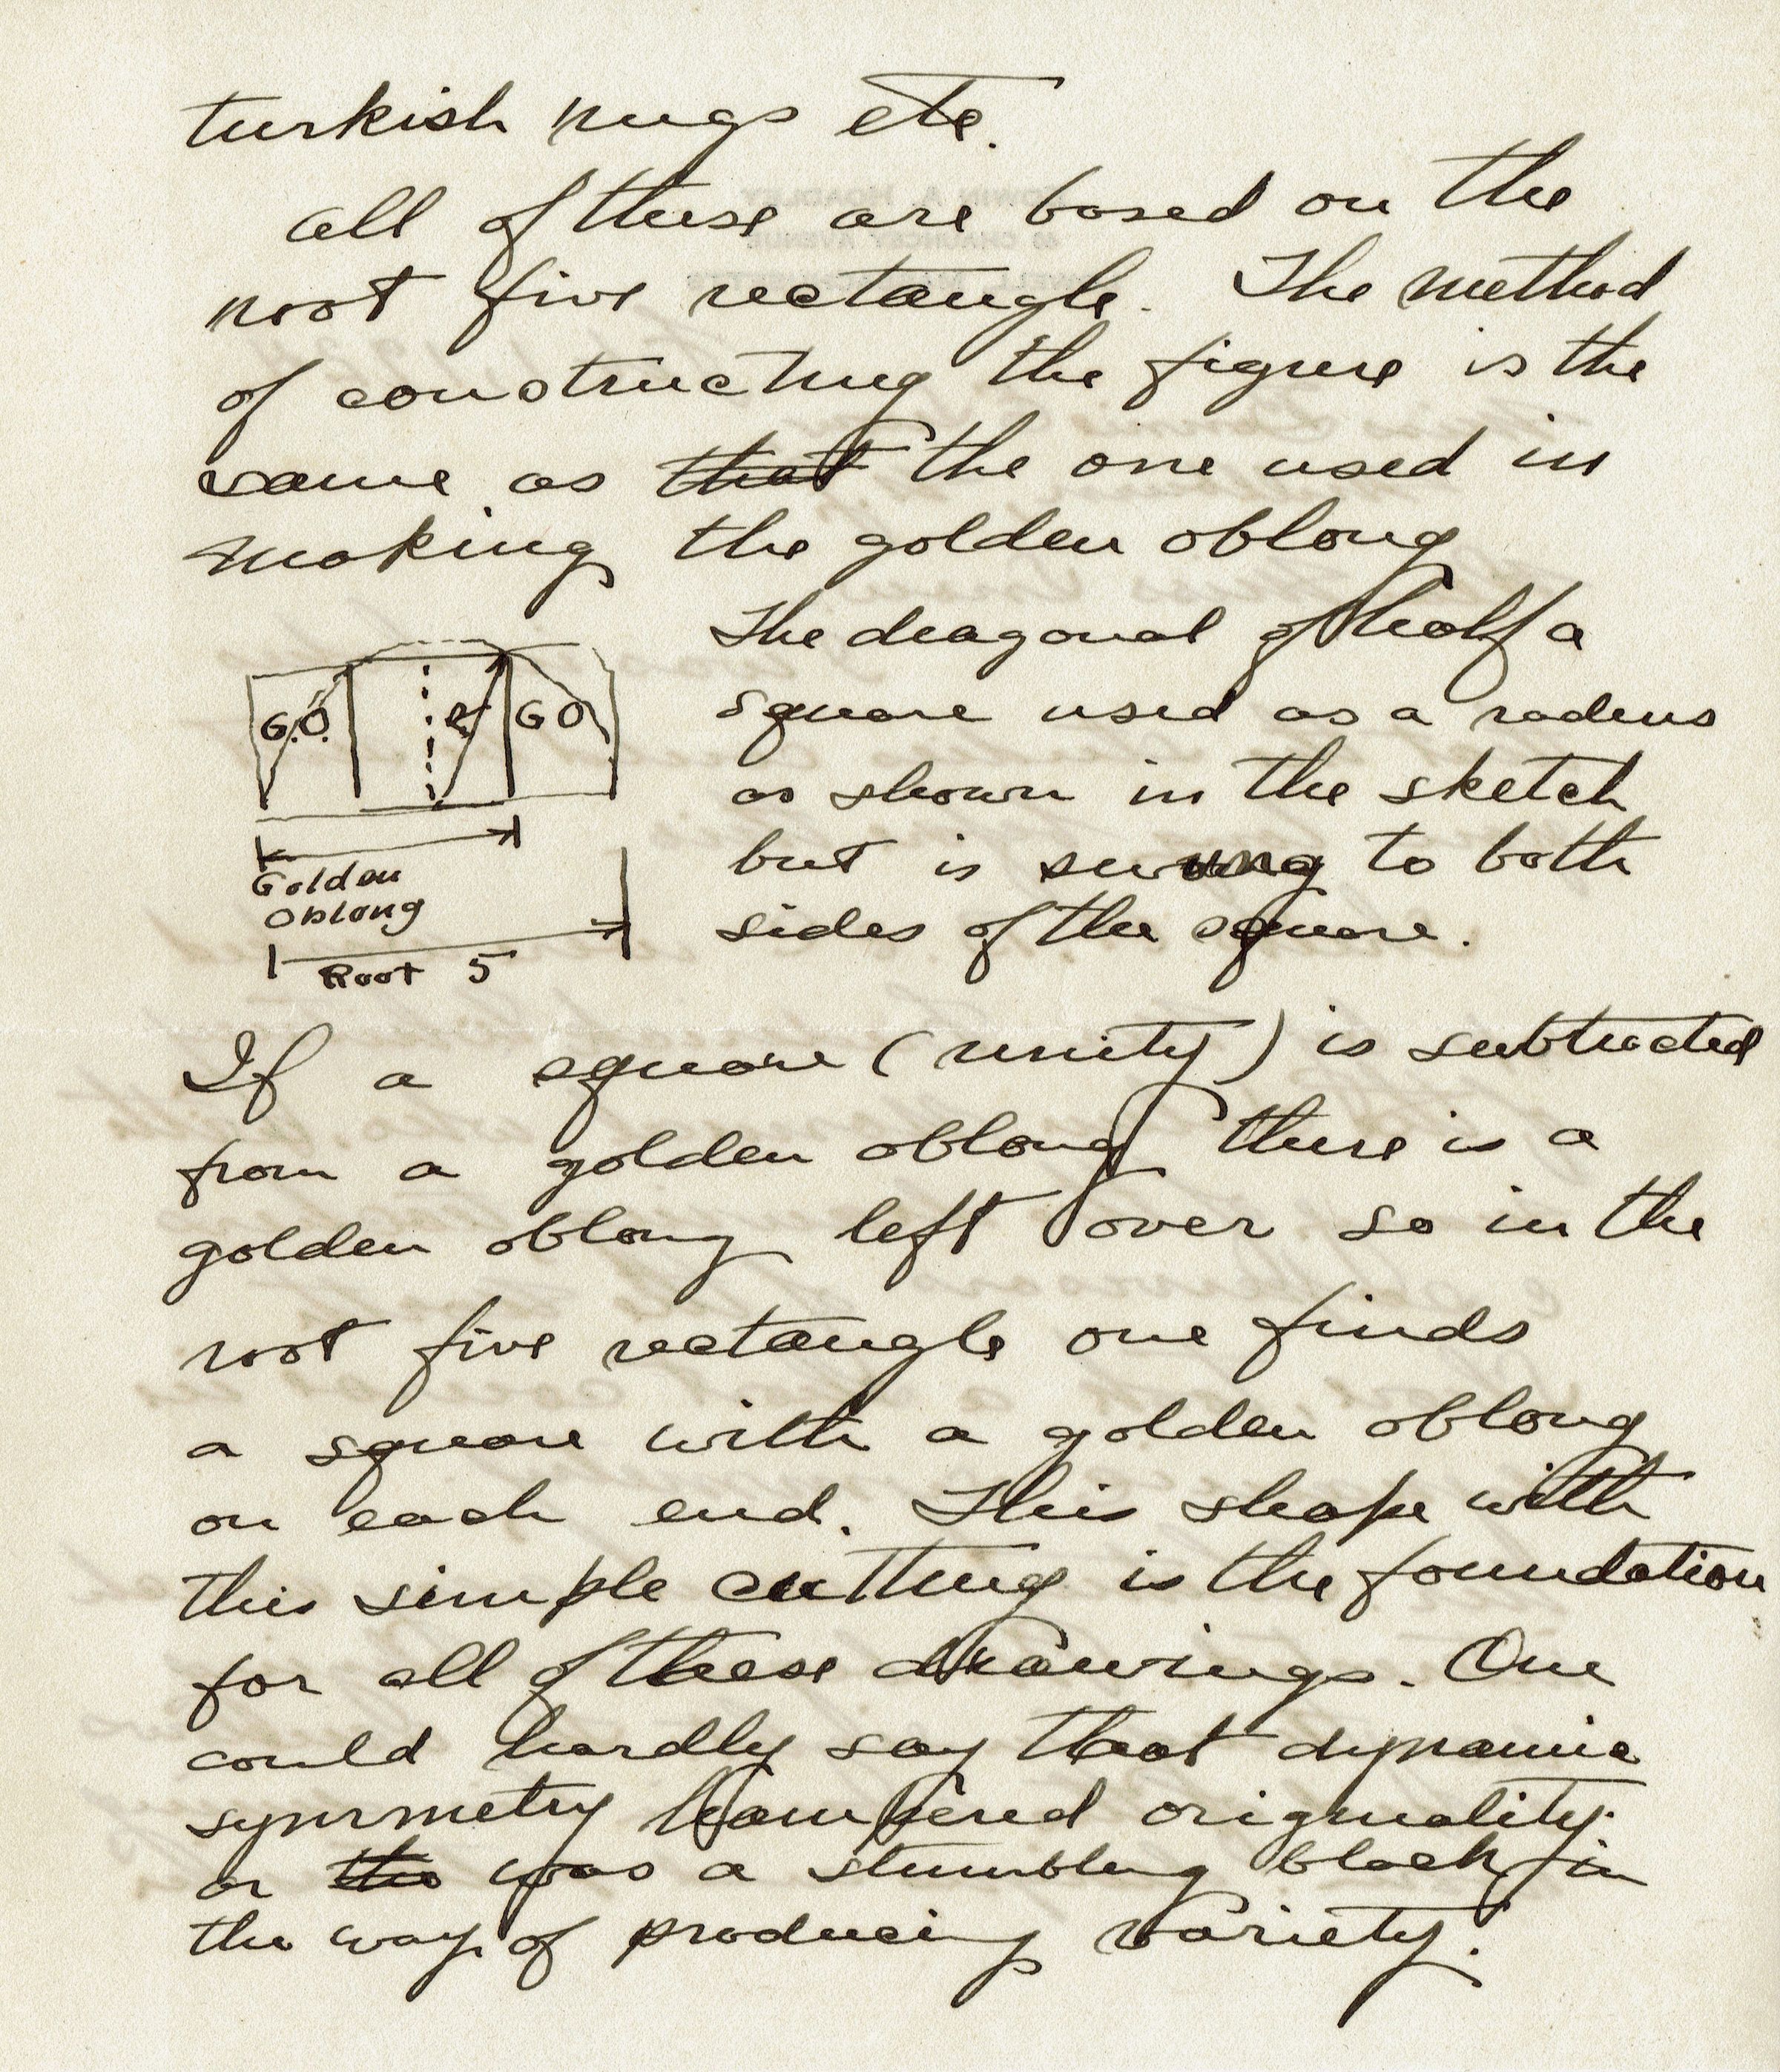 turkish rugs etc.
all of these are based on the
root five rectangle. The method
of constructing the figure is the
same as ~~that~~ the one used in
making the golden oblong
The diagonal of half a
square used as a radius
as shown in the sketch
but is swung to both
sides of the square.
G.O. R GO
Golden
Oblong
Root 5
If a square (unity) is subtracted
from a golden oblong there is a
golden oblong left over so in the
root five rectangle one finds
a square with a golden oblong
on each end. This shape with
this simple cutting is the foundation
for all of these drawings. One
could hardly say that dynamic
symmetry hampered originality
or ~~the~~ was a stumbling block in
the way of producing variety.